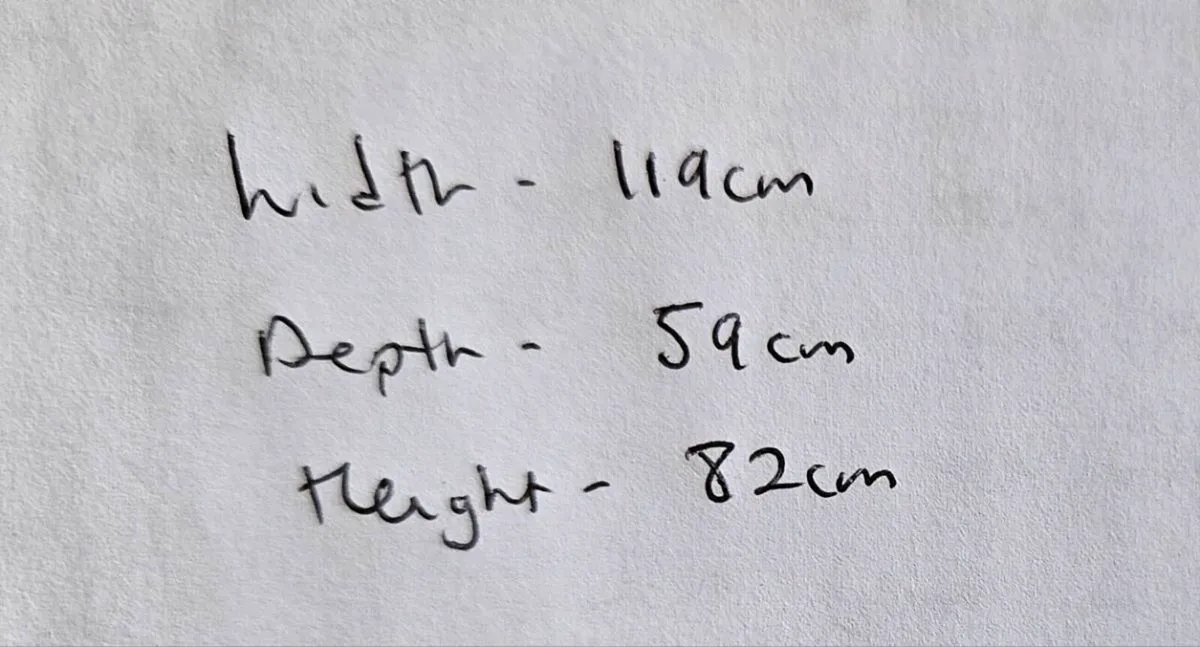 Width - 119cm
Depth - 59cm
Height - 82cm